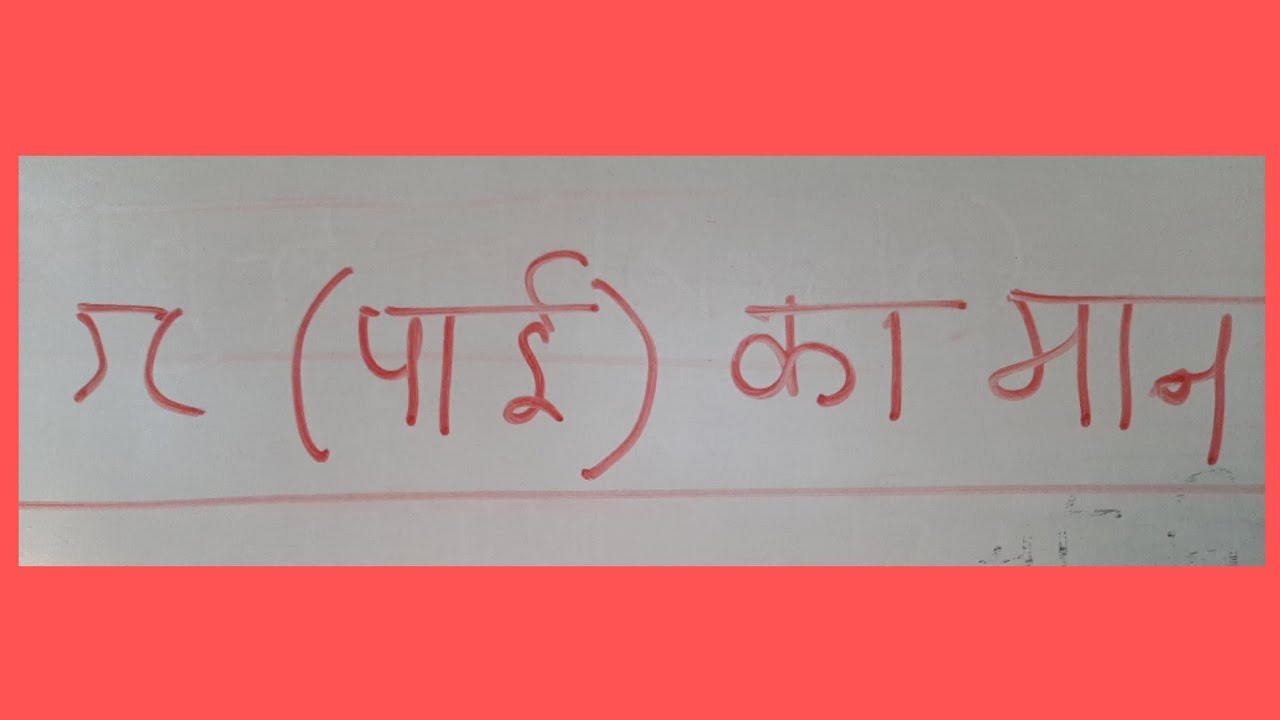 π (पाई) का मान